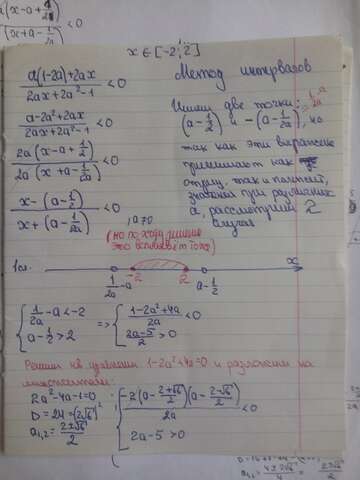 x ∈ [-2; 2]
Метод интервалов
a(1-2a)+2ax / 2ax+2a²-1 < 0
a-2a²+2ax / 2ax+2a²-1 < 0
2a(x-a+1/2) / 2a(x+a-1/2a) < 0
x-(a-1/2) / x+(a-1/2a) < 0
две точки:
(a-1/2) и -(a-1/2a), но
так как эти выражения
принимают как
отриц. так и полож.
значения при различных
a, рассмотрим 2
случая
, a>0
(но по ходу решения
это всплывёт тоже)
1сл.
-2 2 x
1/2a -a a-1/2
{ 1/2a -a < -2
a-1/2 > 2
=> { 1-2a²+4a / 2a < 0
2a-5 / 2 > 0
Решим кв. уравнение 1-2a²+4a=0 и разложим на
множители:
2a²-4a-1=0
D=24=(2√6)²
a₁,₂ = 2±√6 / 2
{ -2(a - 2+√6 / 2)(a - 2-√6 / 2) / 2a < 0
2a-5 > 0